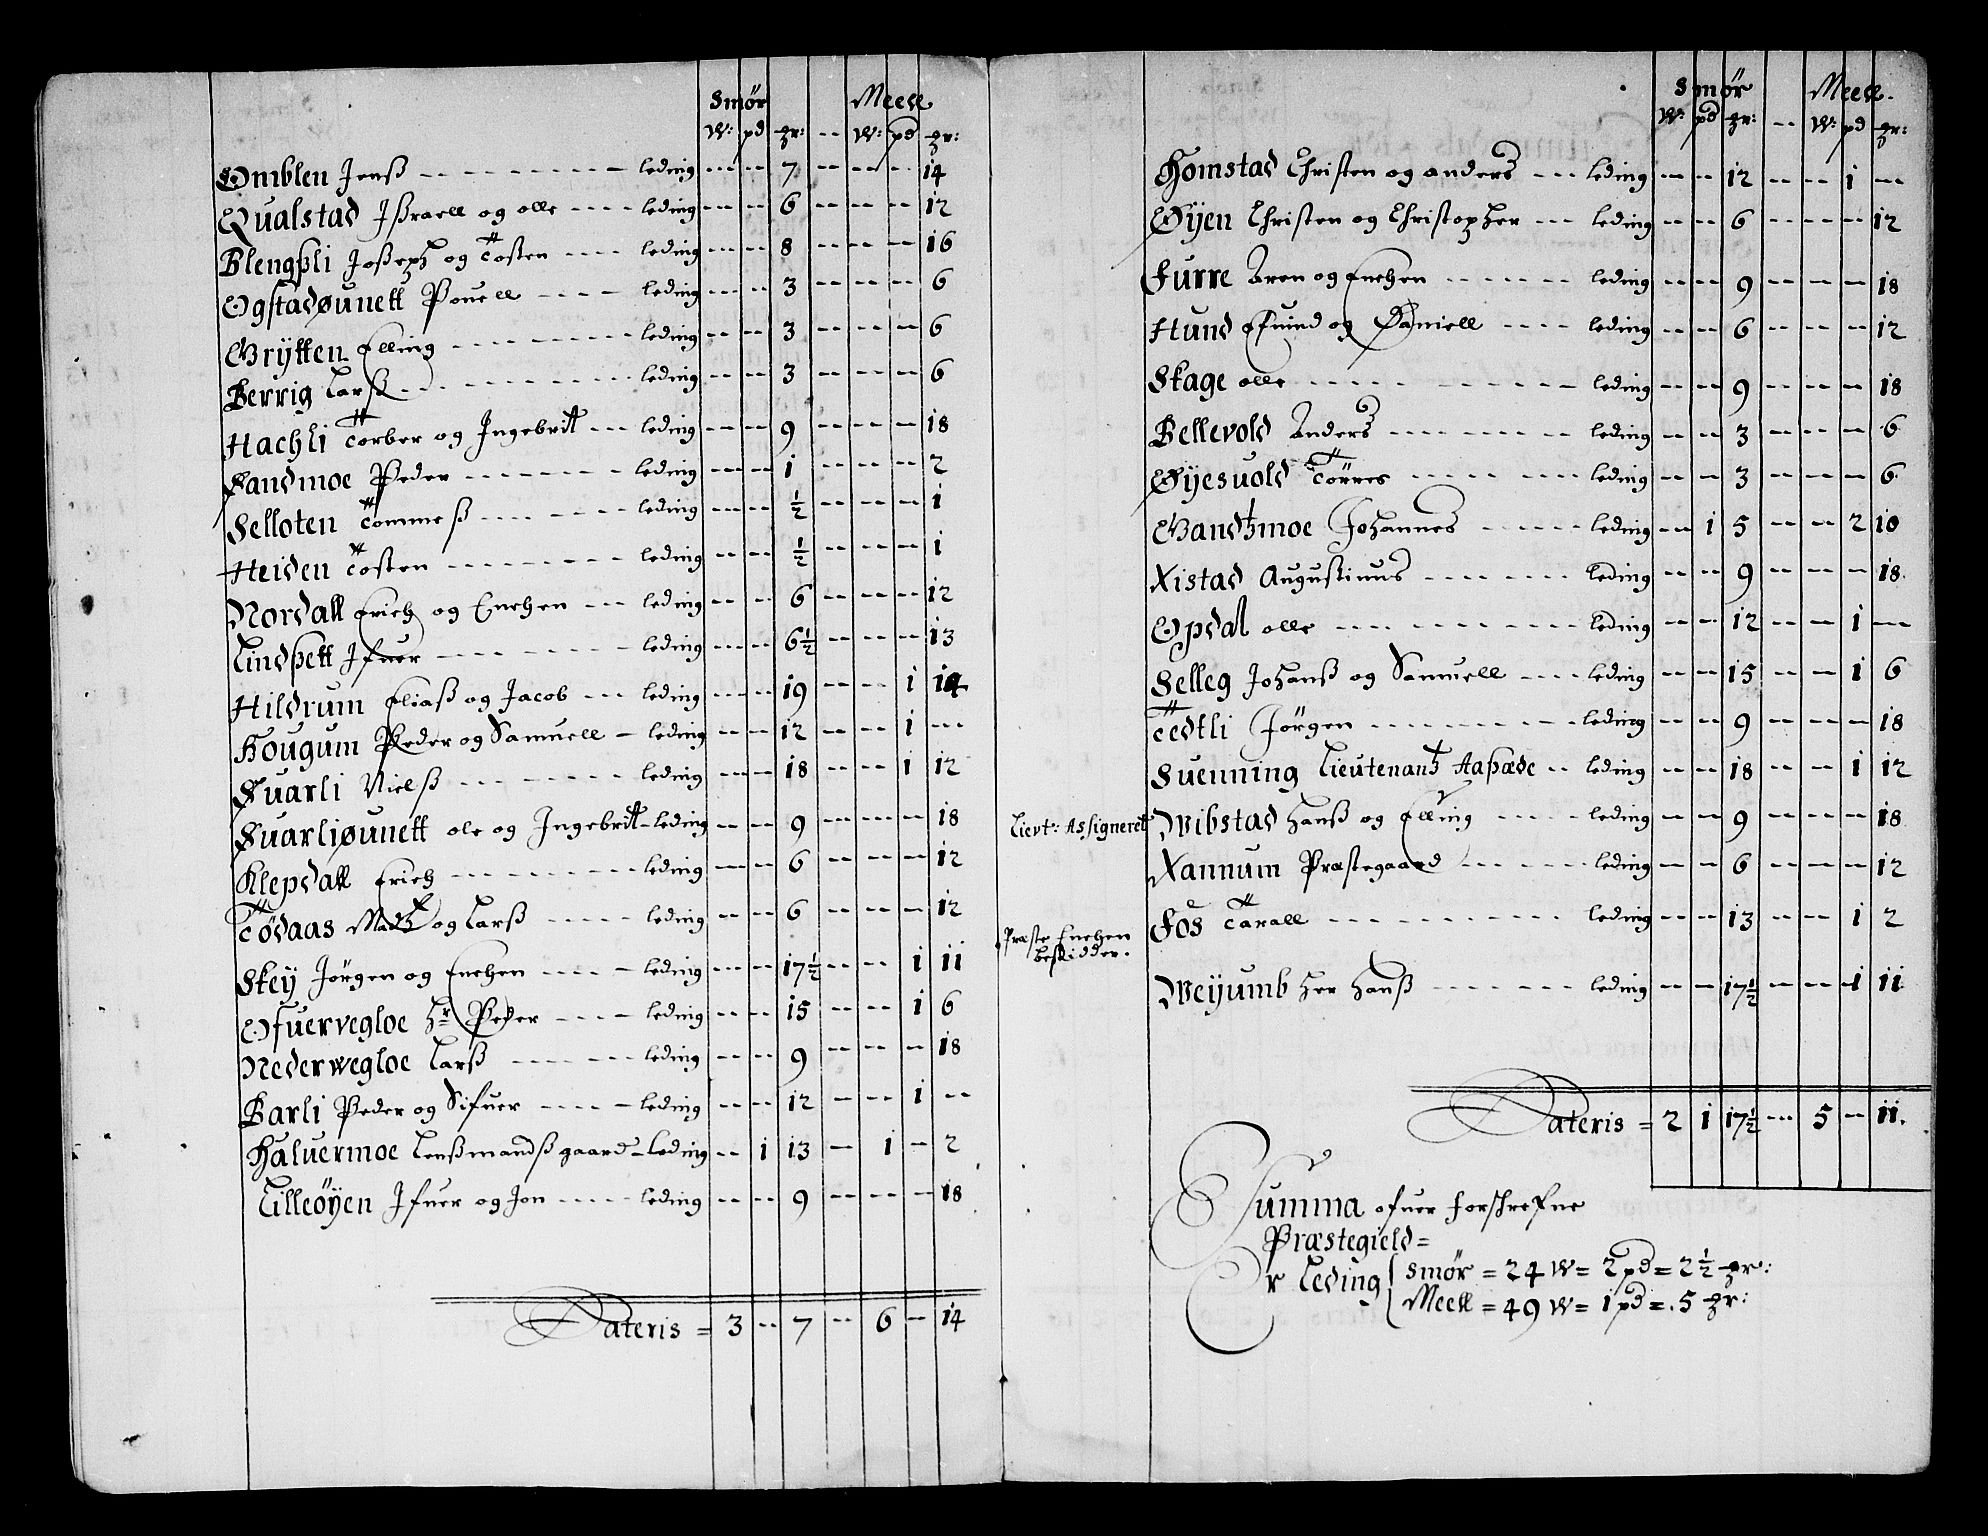 Smør Meell
W: pd gr: -- W: pd gr:
Omblen Jenß leding -- -- 7 -- -- -- 14
Qualstad Jßraell og olle leding -- -- 6 -- -- -- 12
Blengßli Joßeph og Tosten leding -- -- 8 -- -- -- 16
Ogstadøunett Pouell leding -- -- 3 -- -- -- 6
Grÿtten Elling leding -- -- 3 -- -- -- 6
Berrig Larß leding -- -- 3 -- -- -- 6
Hachli Torber og Ingebrit leding -- -- 9 -- -- -- 18
Sandmoe Peder leding -- -- 1 -- -- -- 2
Selloten Tommeß leding -- -- ½ -- -- -- 1
Heiden Tosten leding -- -- ½ -- -- -- 1
Nordall Erich og Enchen leding -- -- 6 -- -- -- 12
Lindßett Jfuer leding -- -- 6½ -- -- -- 13
Hildrum Eliaß og Jacob leding -- -- 19 -- -- 1 14
Hougum Peder og Samuell leding -- -- 12 -- -- 1 --
Suarli Nielß leding -- -- 18 -- -- 1 12
Suarliøunett ole og Ingebrit leding -- -- 9 -- -- -- 18
Klepdall Erich leding -- -- 6 -- -- -- 12
Tødaas Madtz og Larß leding -- -- 6 -- -- -- 12
Skey Jörgen og Enchen leding -- -- 17½ -- -- 1 11
Ofuervegloe Hr Peder leding -- -- 15 -- -- 1 6
Nederwegloe Larß leding -- -- 9 -- -- -- 18
Barli Peder og Sifuer leding -- -- 12 -- -- 1 --
Haluermoe Lenßmandß gaard leding -- 1 13 -- 1 -- 2
Lilleöyen Jfuer og Jon leding -- -- 9 -- -- -- 18
Lateris = 3 -- 7 -- 6 -- 14
Smør Meell.
W: pd gr: -- W: pd gr:
Homstad Christen og anders leding -- -- 12 -- -- 1 --
Øÿen Christen og Christopher leding -- -- 6 -- -- -- 12
Furre Aren og Enchen leding -- -- 9 -- -- -- 18
Hund Efuind og Daniell leding -- -- 6 -- -- -- 12
Skage olle leding -- -- 9 -- -- -- 18
Bellevold Anders leding -- -- 3 -- -- -- 6
Øÿesuold Törres leding -- -- 3 -- -- -- 6
Gandtzmoe Johannes leding -- 1 5 -- -- 2 10
Xistad Augustinus leding -- -- 9 -- -- -- 18.
Opdal olle leding -- -- 12 -- -- 1 --
Selleg Johanß og Samuell leding -- -- 15 -- -- 1 6
Tedtli Jörgen leding -- -- 9 -- -- -- 18
Suenning Lieutenantz Aaßæde leding -- -- 18 -- -- 1 12
Lievt: Assigneret Wibstad Hanß og Elling leding -- -- 9 -- -- -- 18
Xannum Præstegaard leding -- -- 6 -- -- -- 12
Fos Tarall leding -- -- 13 -- -- 1 2
Præste Enchen
beskidder.
Weÿumb Her Hanß leding -- -- 17½ -- -- 1 11
Lateris = 2 1 17½ -- 5 -- 11.
Summa ofuer forschrefne
Præstegield =
Er Leding Smør = 24 W = 2 pd = 2½ gr:
Meell = 49 W = 1 pd = 5 gr: